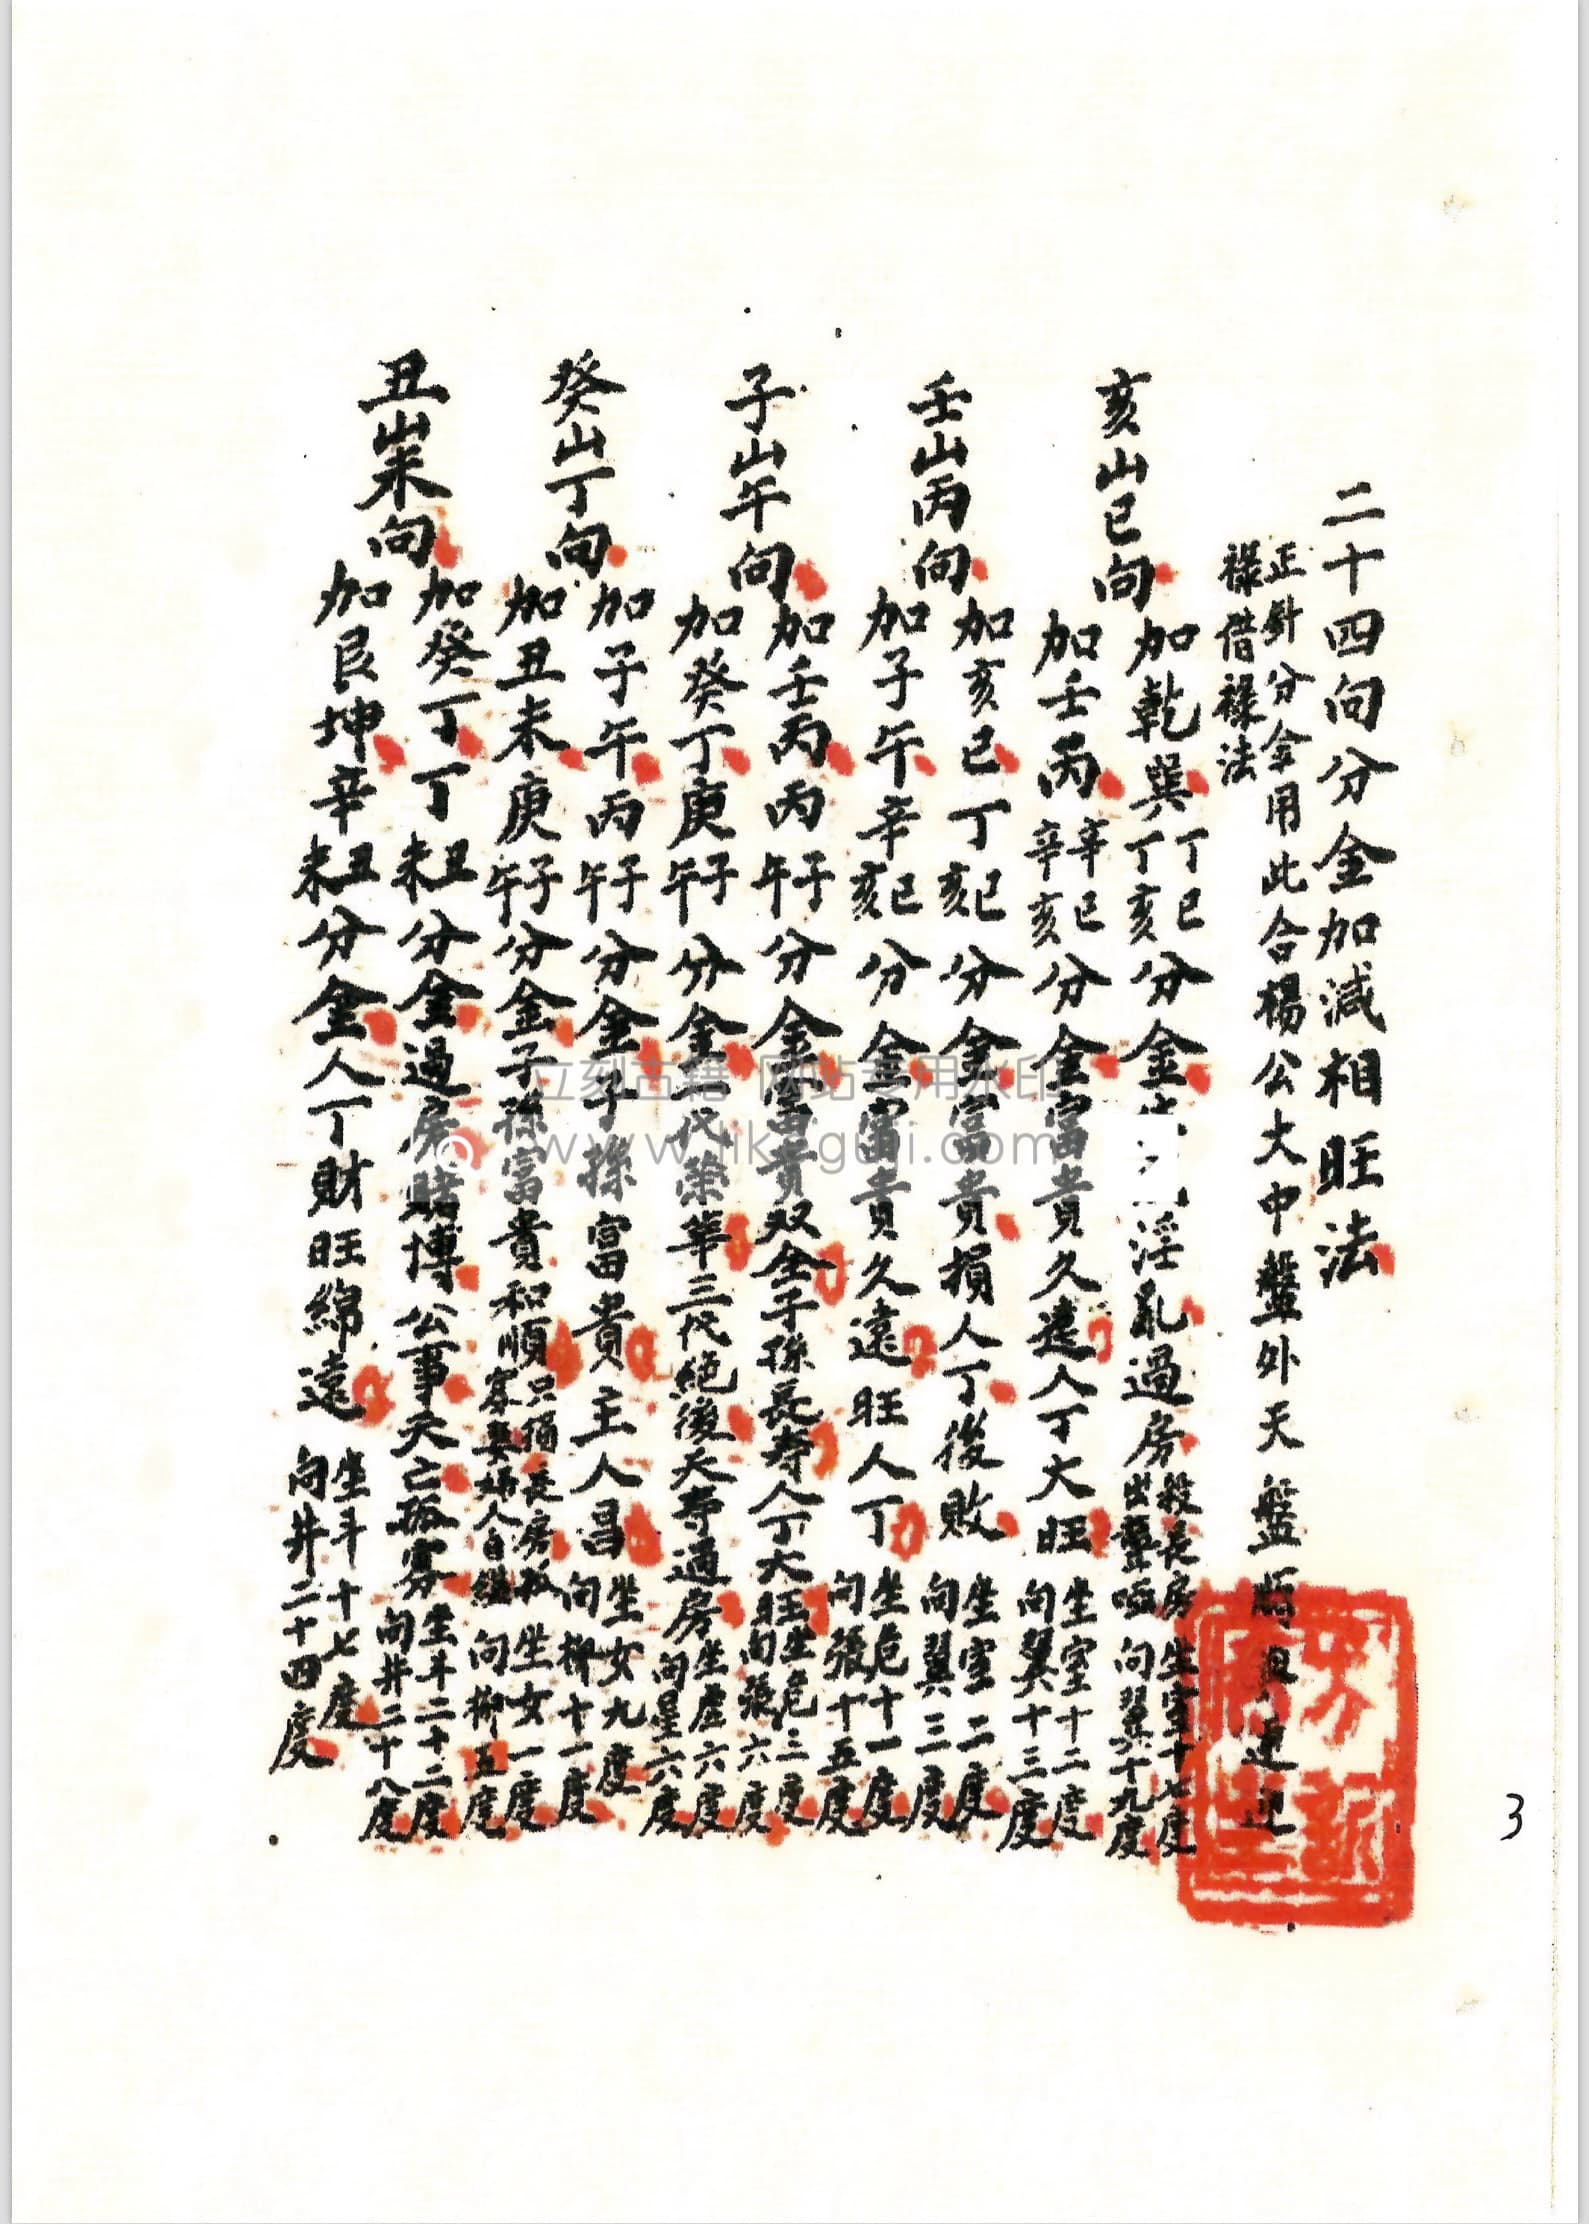 二十四向分金加減相旺法
正針分金用此合楊公大中盤外天盤
祿借祿法
亥山巳向
加乾巽丁巳丁亥分金淫乱過房
坐室十七度
向翼十九度
加壬丙辛巳辛亥分金富貴久遠人丁大旺
坐室十二度
向翼十三度
壬山丙向
加亥巳丁巳亥分金富貴損人丁後敗
坐室二度
向翼三度
加子午辛巳亥分金富貴久遠旺人丁
坐危十一度
向張十五度
子山午向
加壬丙丙子午分金富貴双全子孫長寿人丁大旺
坐危三度
向張六度
加癸丁庚子午分金二代榮華三代絶後夭寿過房
坐虛六度
向星六度
癸山丁向
加子午丙子午分金子孫富貴主人昌
坐女九度
向柳十一度
加丑未庚子午分金子孫富貴和順
坐女一度
向柳五度
丑山未向
加癸丁丁丑未分金過房賭博公事夭亡孤寡
坐斗二十二度
向井二十八度
加艮坤辛丑未分金人丁財旺綿遠
坐斗十七度
向井二十四度
立刻古籍 网站专用水印
www.likeguji.com
3